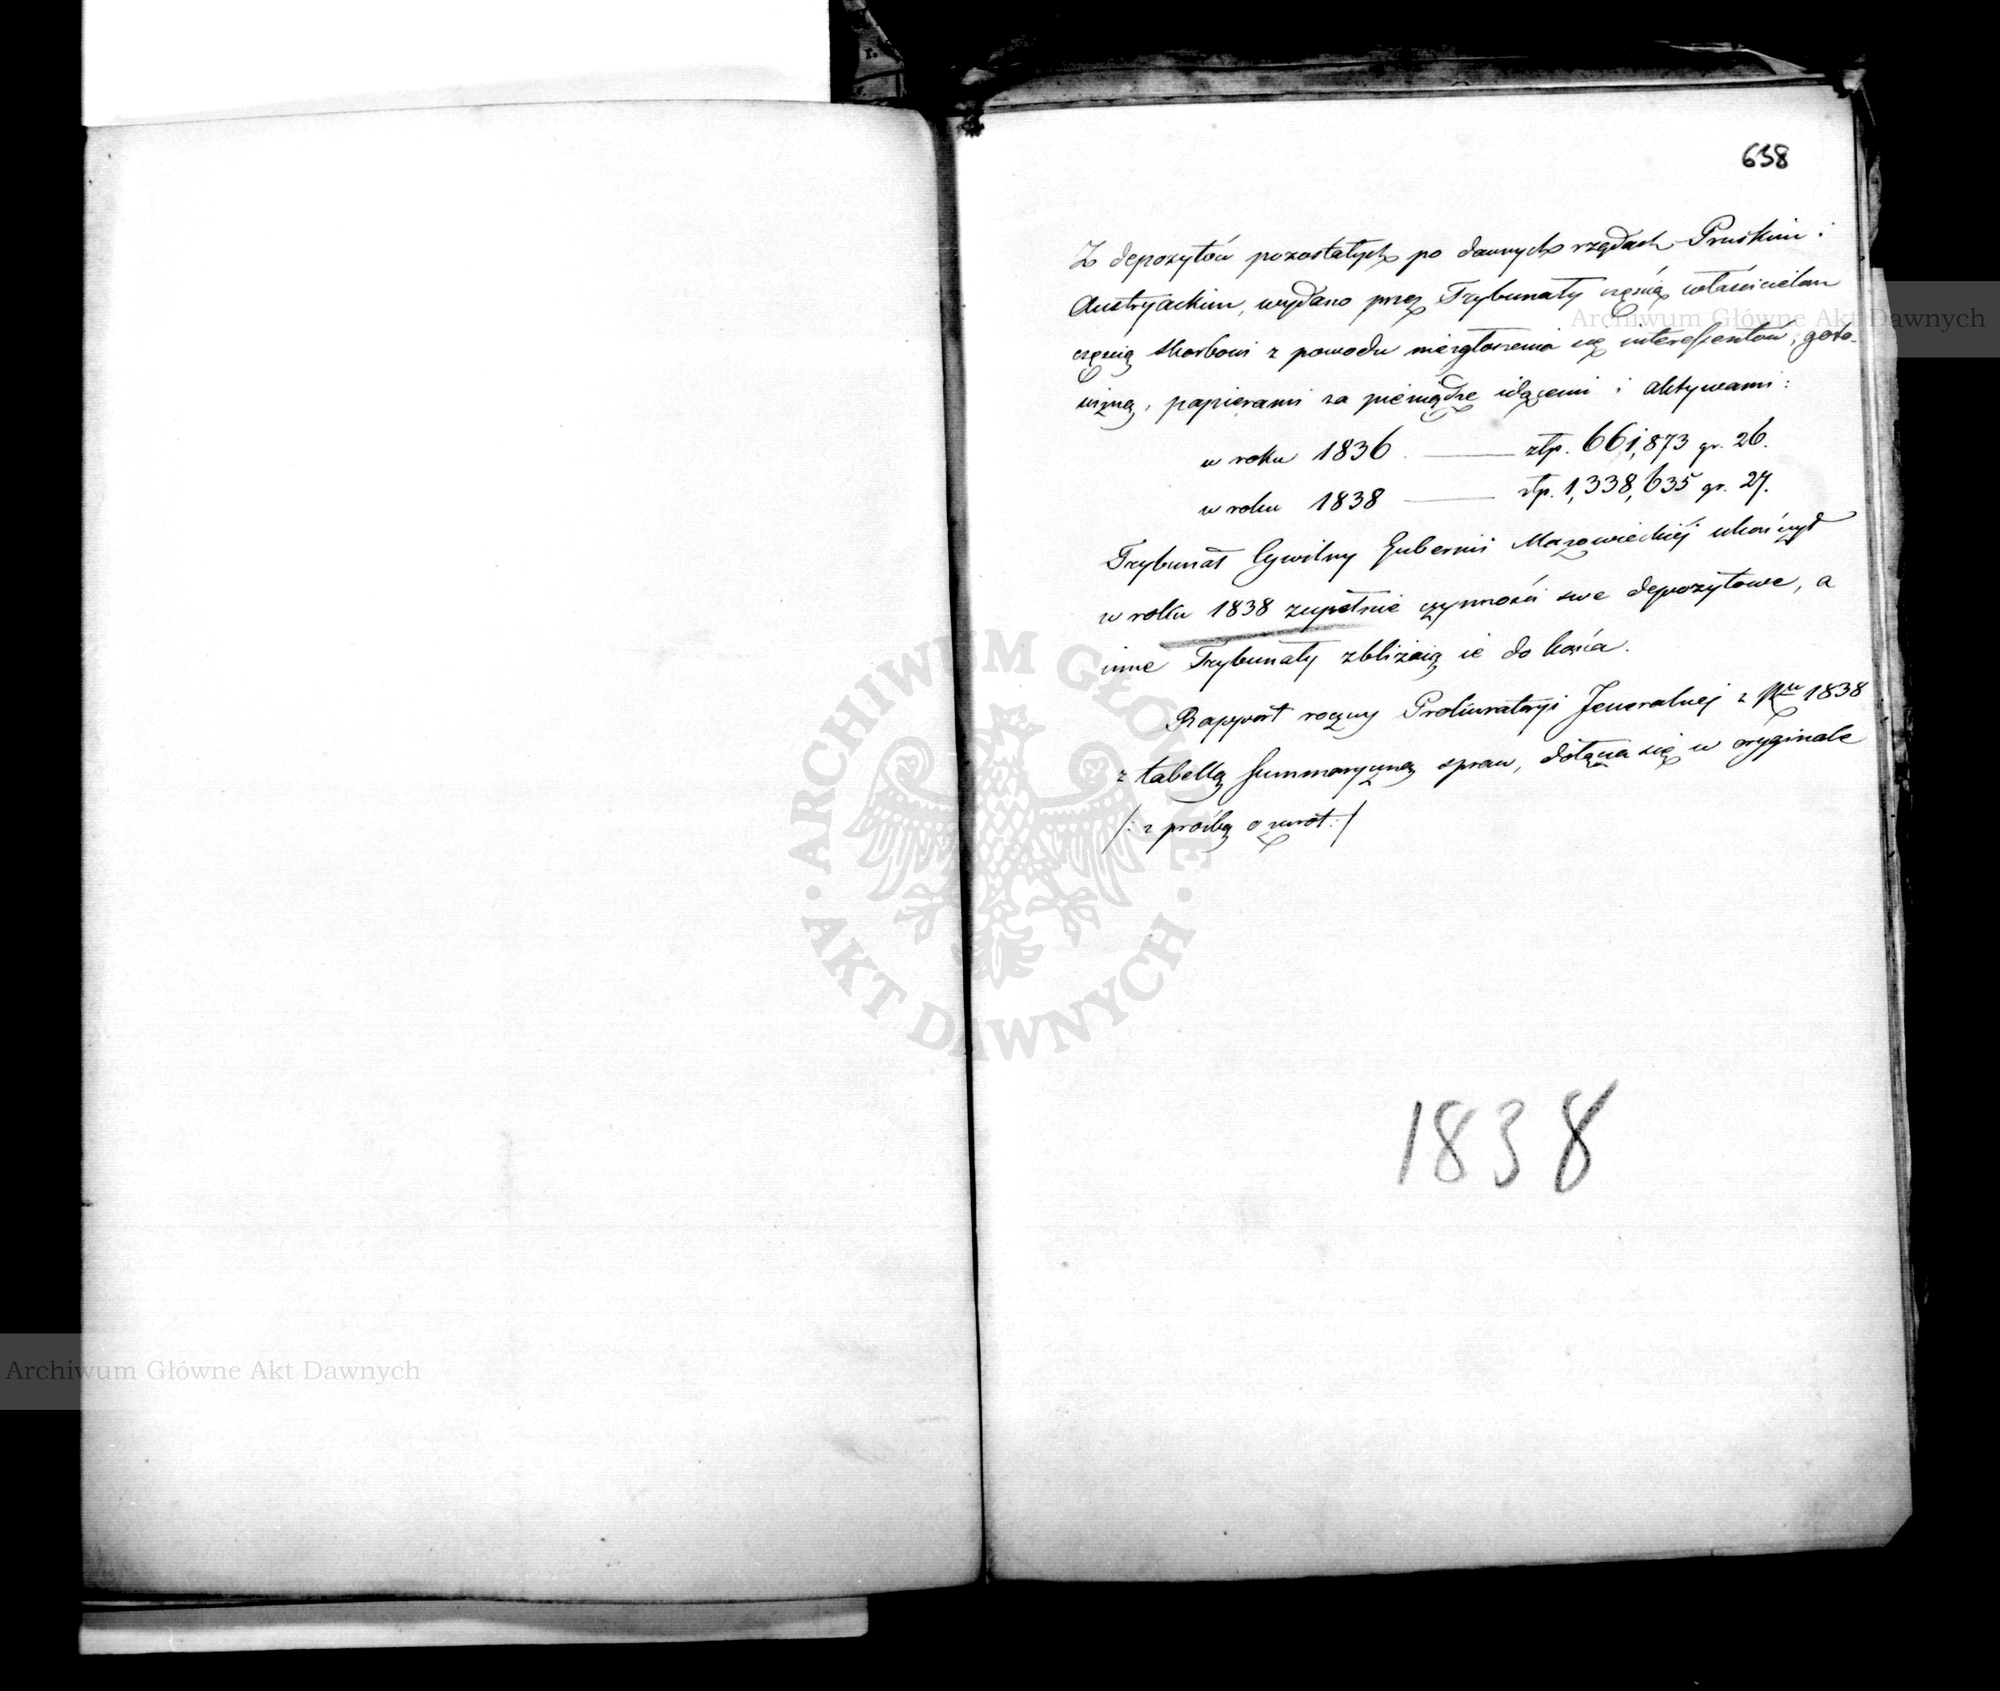 638
Z depozytów pozostałych po dawnych rządach Pruskim i
Austryackim, wydano przez Trybunały częścią właścicielom
częścią skarbowi z powodu niezgłoszenia się interessentów, goto-
wizną, papierami za pieniądze idącemi i aktywami:
w roku 1836 — złp. 661,873 gr. 26.
w roku 1838 — złp. 1,338,635 gr. 27.
Trybunał Cywilny Gubernii Mazowieckiéj ukończył
w roku 1838 zupełnie czynności swe depozytowe, a
inne Trybunały zbliżaią ie do końca.
Rapport roczny Prokuratoryi Jeneralnej z Rku 1838
z tabellą summaryczną spraw, dołącza się w oryginale
/: z prośbą o zwrot :/
1838
ARCHIWUM GŁÓWNE AKT DAWNYCH
Archiwum Główne Akt Dawnych
Archiwum Główne Akt Dawnych